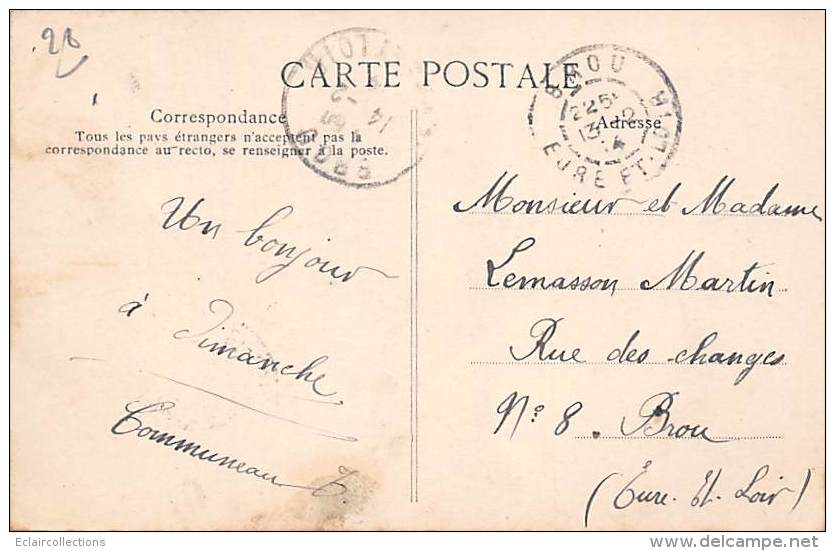 28
CARTE POSTALE
Correspondance
Tous les pays étrangers n'acceptent pas la
correspondance au recto, se renseigner à la poste.
Adresse
BROU
2 25
13
EURE ET-LOIR
Un bonjour
à Dimanche
Communeau
Monsieur et Madame
Lemasson Martin
Rue des changes
N° 8. Brou
(Eure-Et-Loir)
Eclaircollections
www.delcampe.net